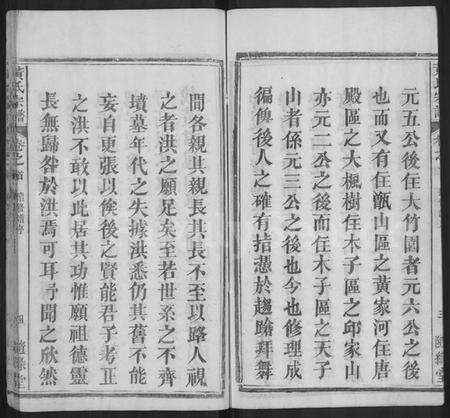 元五公後住大竹園者元六公之後
也而又有住甑山區之黃家河住唐
殿區之大楓樹住木子區之邱家山
亦元二公之後而住木子區之天子
山者係元三公之後也今也修理成
徧俾後人之確有拮憑於趨蹌拜舞
間各親其親長其長不至以路人視
之者洪之願足矣至若世系之不齊
墳墓年代之失據洪悉仍其舊不能
妄自更張以俟後之賢能君子考正
之洪不敢以此居其功惟願祖德靈
長無歸咎於洪焉可耳予聞之欣然
黃氏宗譜 卷之首
四
三